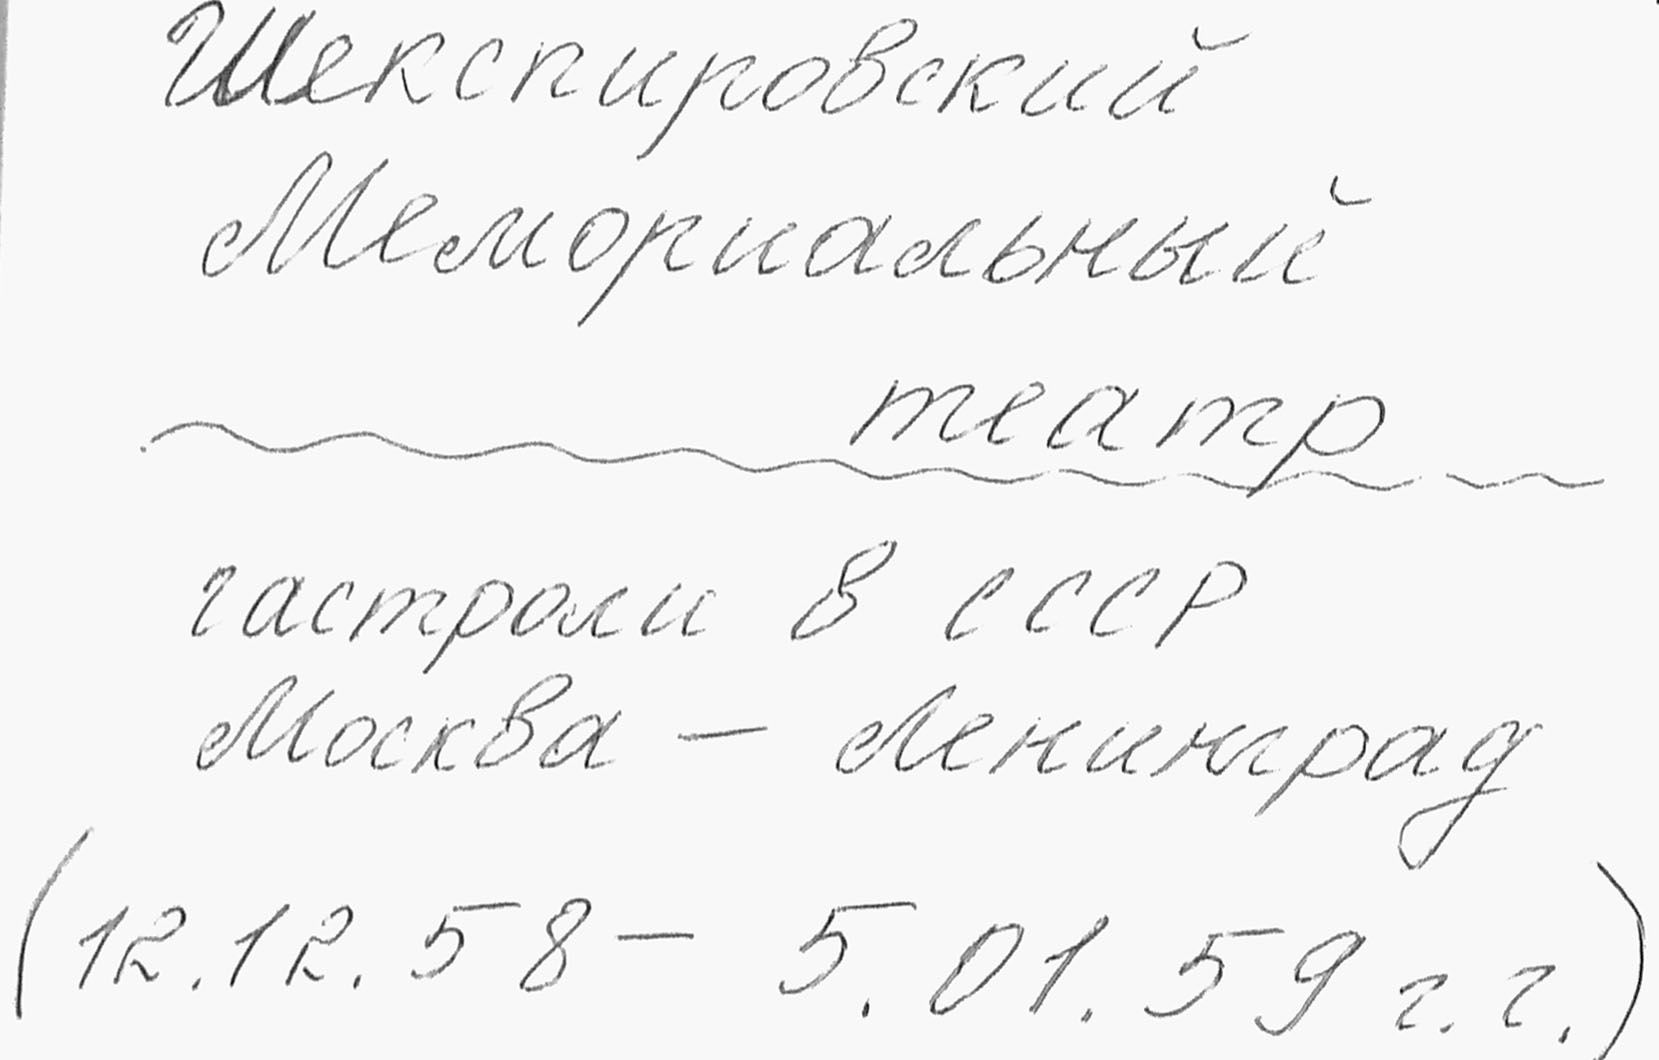 Шекспировский
Мемориальный
театр
гастроли в СССР
Москва – Ленинград
(12.12.58 – 5.01.59 г.г.)